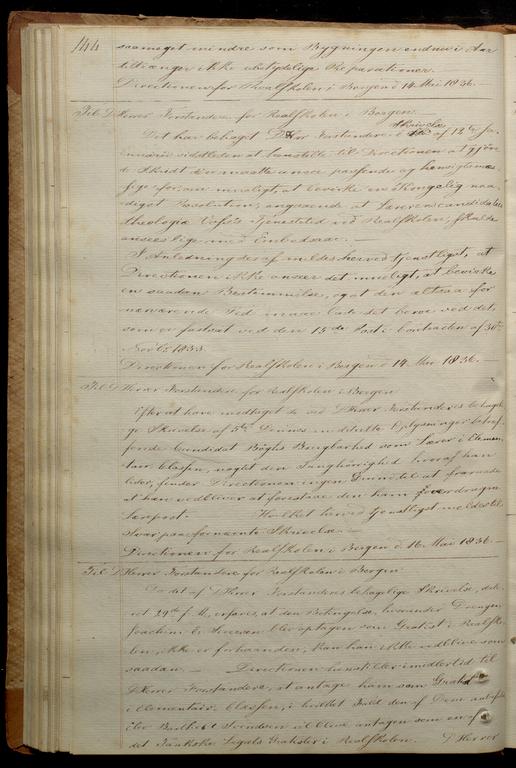 144
saameget mindre som Bygningen endnu i Aar
tiltrænger ikke ubetydelige Reparationer.
Directionen for Realskolen i Bergen d 14 Mai 1836.
Til D'Herrer Forstandere for Realskolen i Bergen.
Skrivelse
Det har behaget D'Hrr Forstandere i af 12te Ja-
nuarii sidstleden at henstille til Directionen at gjøre
de Skridt der maatte ansees passende og hensigtsmæs-
sige for, om muligt, at bevirke en Kongelig naa-
digst Resolution, angaaende at Læreren candidatus
theologiæ Voss's Tjenestetid ved Realskolen, skulde
ansees lige med Embedsaar. —
I Anledning deraf meldes herved tjenstligst, at
Directionen ikke anseer det mueligt, at bevirke
en saadan Bestemmelse, og at den altsaa for
nærværende Tid maae lade det beroe ved det,
som er fastsat ved den 15de Post i Contracten af 30te
Novbr 1833.
Directionen for Realskolen i Bergen d 14 Mai 1836. —
Til D'Herrer Forstandere for Realskolen i Bergen
Efter at have modtaget de ved D'Herrer Forstanderes behage-
lige Skrivelse af 5te Dennes meddeelte Oplysninger betræf-
fende Candidat Bøghs Brugbarhed som Lærer i Elemen-
tair Classen, uagtet den Tunghørighed hvoraf han
lider, finder Directionen ingen Grund til at fraraade
at han vedbliver at forestaae den ham overdragne
Lærepost. Hvilket herved tjenstligst meldes til
Svar paa fornævnte Skrivelse. —
Directionen for Realskolen i Bergen d 16 Mai 1836. —
Til D'Herrer Forstandere for Realskolen i Bergen
Da det af D'Herrer Forstanderes behagelige Skrivelse, date-
ret 29de f. M., erfares, at den Betingelse, hvorunder Drengen
Joachim E. Iversen blev optagen som Gratist i Realsko-
len, ikke er forhaanden, kan han ikke vedblive som
saadan. — Directionen henstiller imidlertid til
D'Herrer Forstandere, at antage ham som Gratist
i Elementair Classen, i hvilket Fald den af Dem anbefa-
lede Svendsen vil blive antagen som en af
det Fankske Legats Gratister i Realskolen. D'Herrer